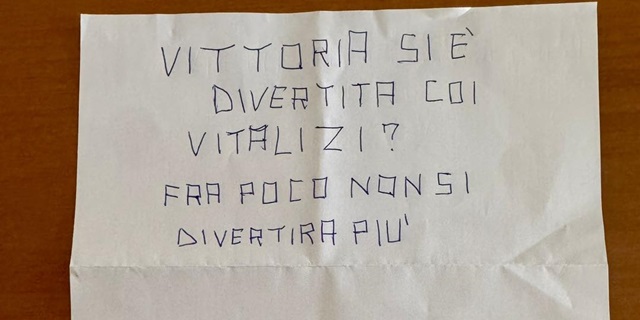 VITTORIA SI È
DIVERTITA COI
VITALIZI?
FRA POCO NON SI
DIVERTIRA PIU'